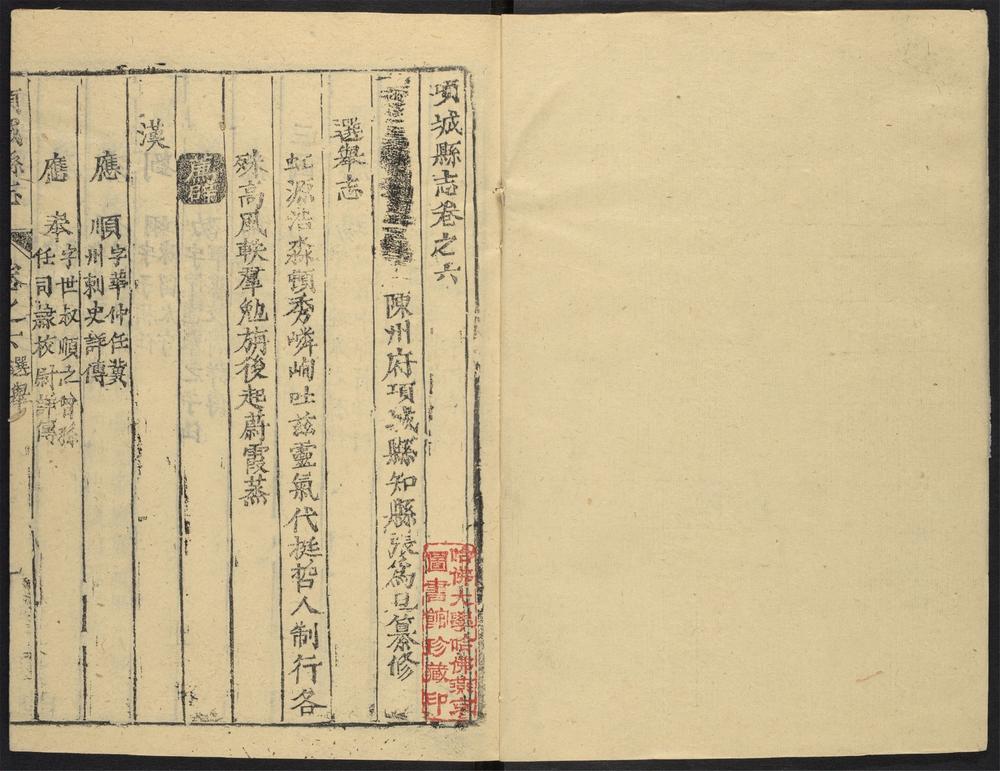 項城縣志卷之六
陳州府項城縣知縣張為旦纂修
選舉志
虹源浩淼頓秀嶙峋吐茲靈氣代挺哲人制行各
殊高風軼羣勉旃後起蔚霞蒸
薦辟
漢
應順字華仲任冀
州刺史詳傳
應奉字世叔順之曾孫
任司隸校尉詳傳
項城縣志 卷之六 選舉
哈佛大學哈佛燕京
圖書館珍藏印